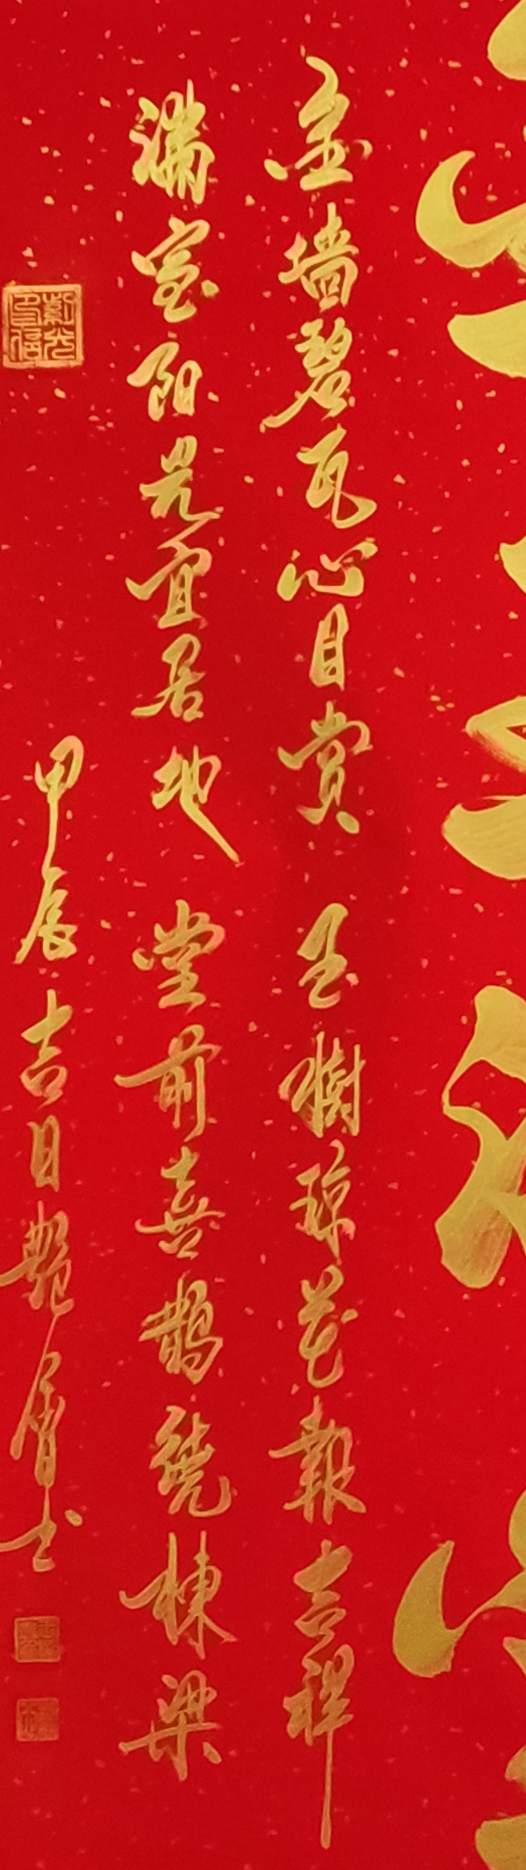 金墙碧瓦心目赏 玉树琼花報吉祥
满室阳光宜居地 堂前喜鹊绕栋梁
甲辰吉日艳屑书